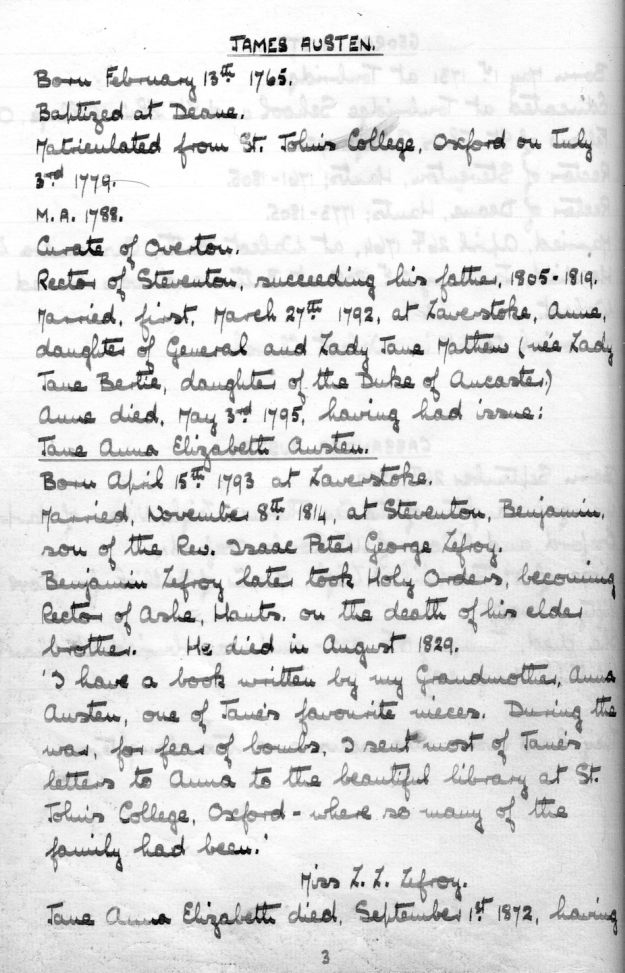 JAMES AUSTEN.
Born February 13th 1765.
Baptized at Deane.
Matriculated from St. John's College, Oxford on July
3rd 1779.
M.A. 1788.
Curate of Overton.
Rector of Steventon, succeeding his father, 1805-1819.
Married, first, March 27th 1792, at Laverstoke, Anne,
daughter of General and Lady Jane Mathew (née Lady
Jane Bertie, daughter of the Duke of Ancaster)
Anne died, May 3rd 1795, having had issue:
Jane Anna Elizabeth Austen.
Born April 15th 1793 at Laverstoke.
Married, November 8th 1814, at Steventon, Benjamin,
son of the Rev. Isaac Peter George Lefroy.
Benjamin Lefroy later took Holy Orders, becoming
Rector of Ashe, Hants. on the death of his elder
brother. He died in August 1829.
'I have a book written by my Grandmother, Anna
Austen, one of Jane's favourite nieces. During the
war, for fear of bombs, I sent most of Jane's
letters to Anna to the beautiful library at St.
John's College, Oxford - where so many of the
family had been.'
Miss L. L. Lefroy.
Jane Anna Elizabeth died, September 1st 1872, having
3